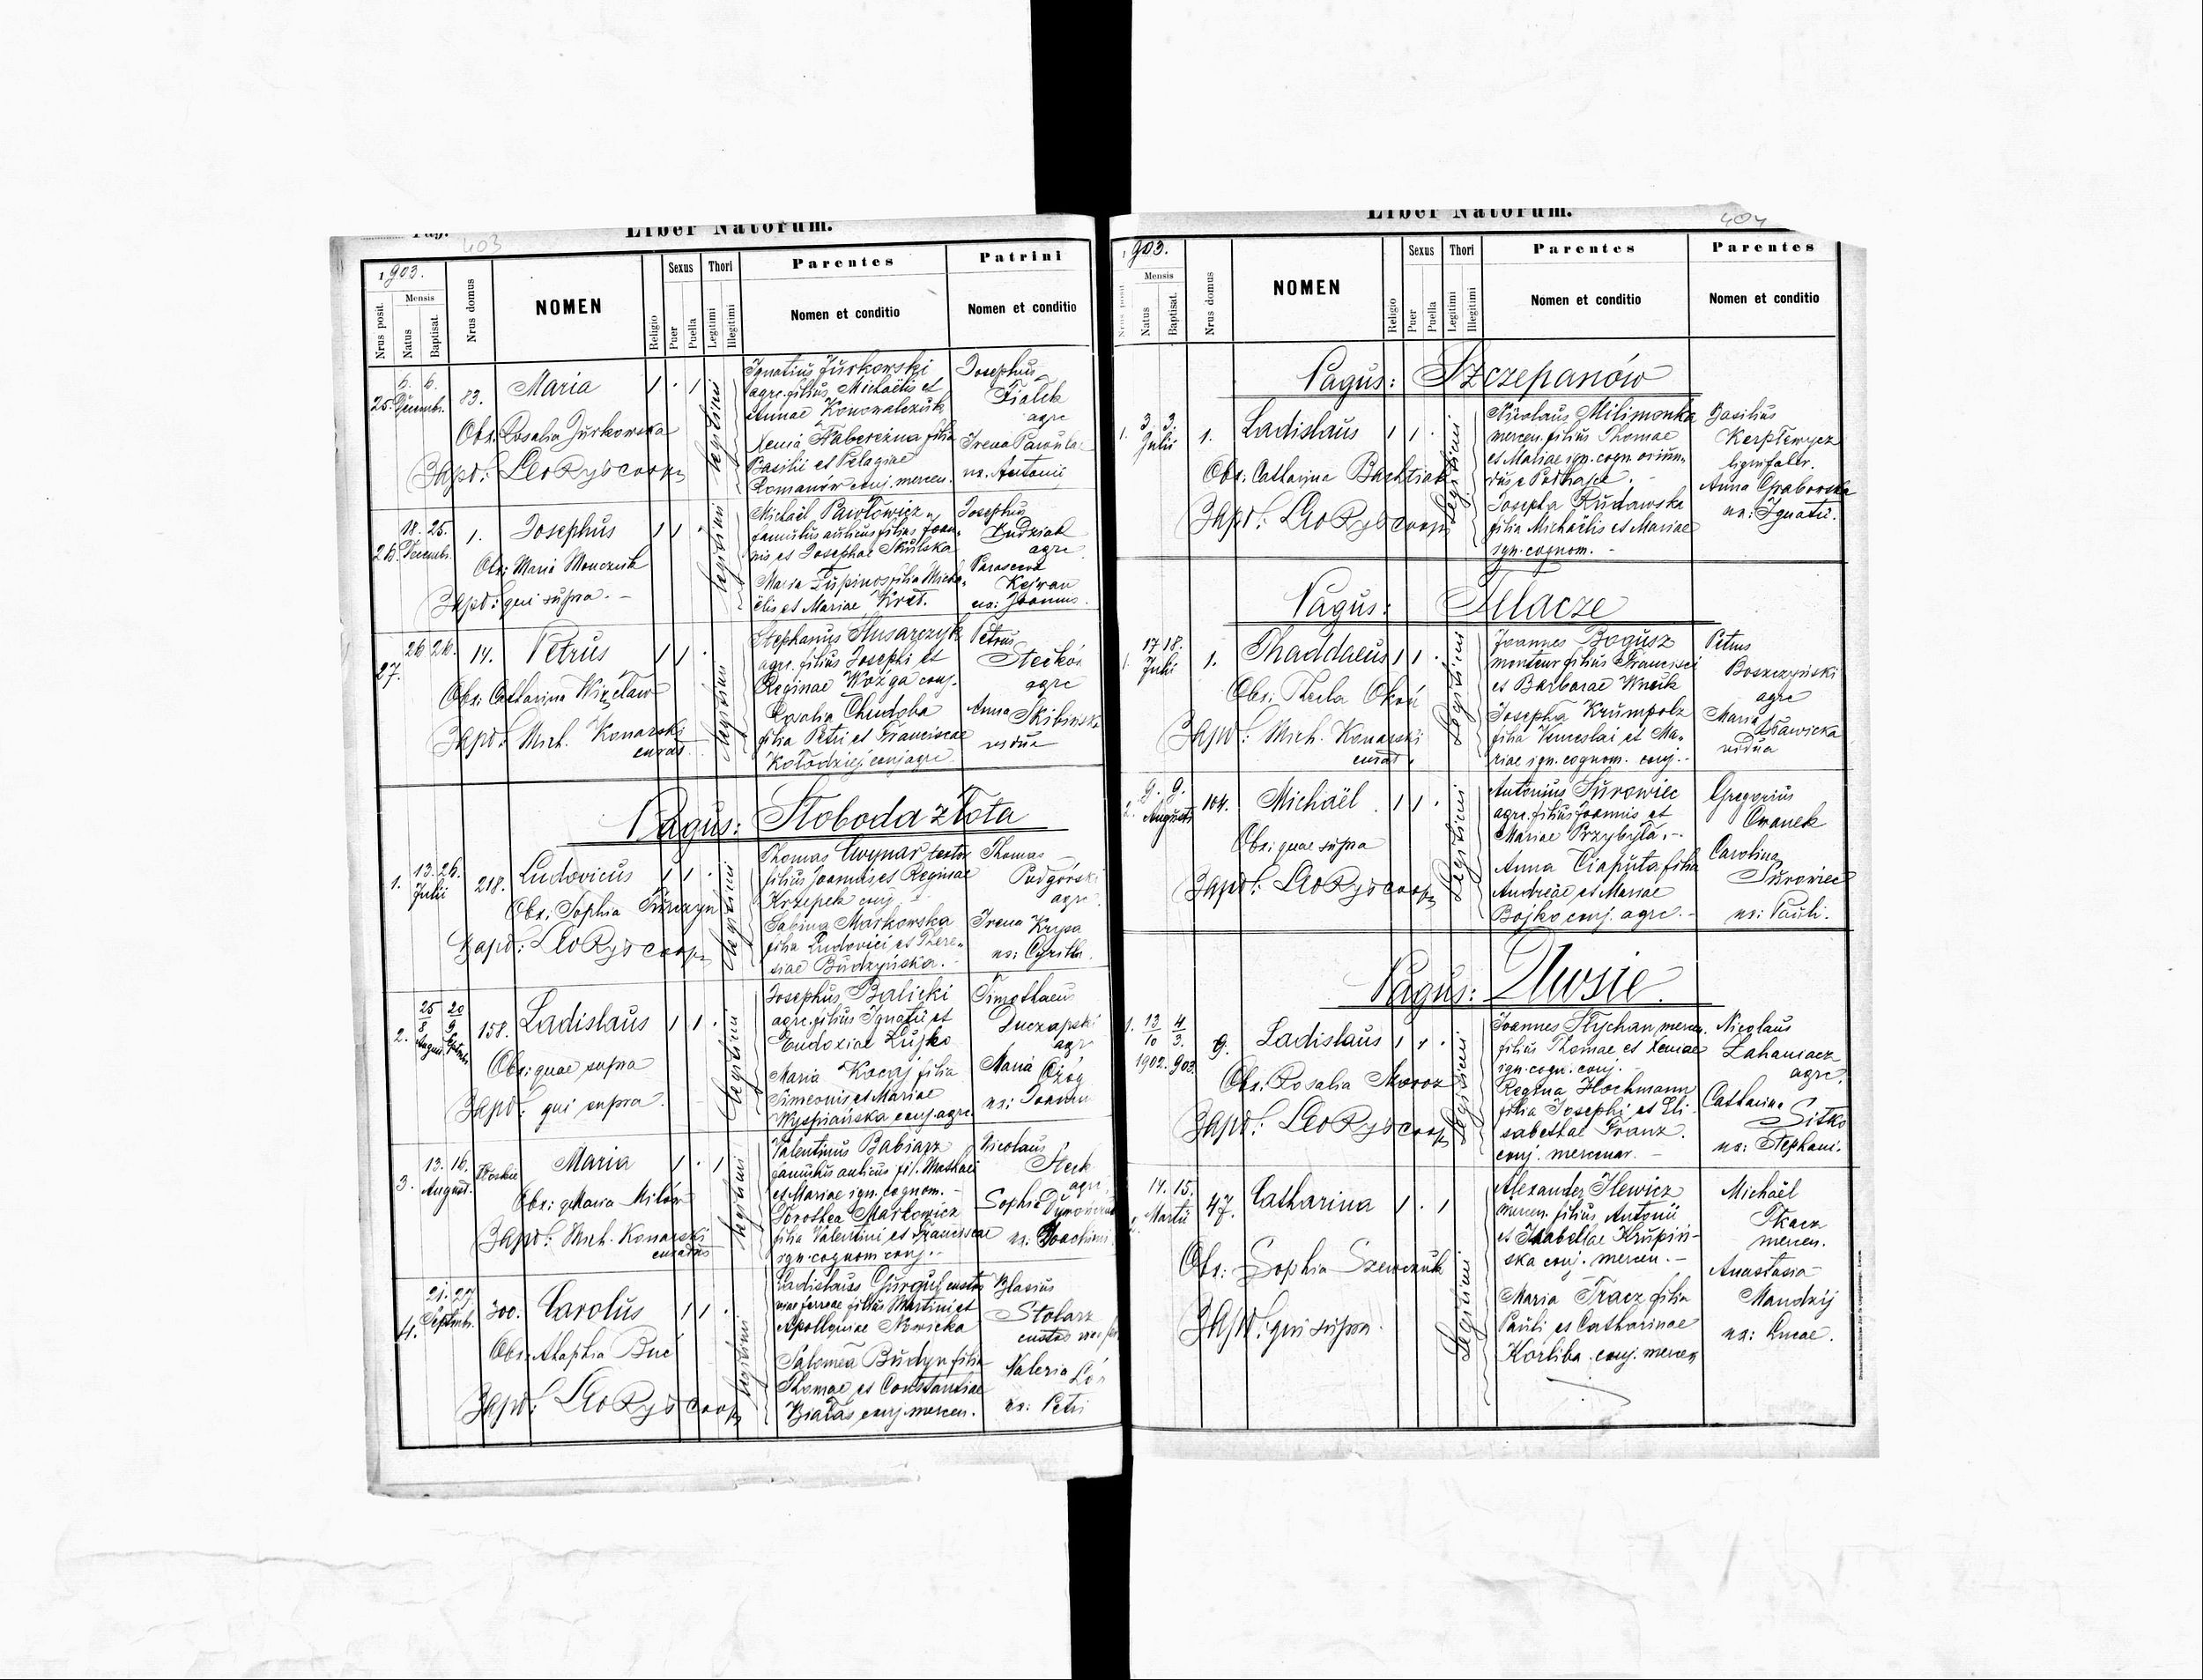 Pag.
403
Liber Natorum.
1903.
Nrus posit.
Mensis
Natus
Baptisat.
Nrus domus
NOMEN
Religio
Sexus
Puer
Puella
Thori
Legitimi
Illegitimi
Parentes
Nomen et conditio
Patrini
Nomen et conditio
25. 6. 6. Decembr. 83. Maria 1 · 1
Obs. Rosalia Jurkowska
Bapt: Leo Ryś coop
legitimi
Ignatius Jurkowski
agrc. filius Michaëlis et
Annae Konowalczuk
Xenia filia
Basilii et Pelagiae
Romanów conj. mercen.
Josephus
Fiałek
agrc
Irena
ux. Antonii
26. 18. 25. Decembr. 1. Josephus 1 1 ·
Obs: Maria
Bapt: qui supra. -
legitimi
Michaël Pawłowicz
famulus aulicus filius Joan-
nis et Josephae Skulska
Maria filia Micha-
ëlis et Mariae Kret.
Josephus
Kudziak
agrc
Parasceva
ux: Joannis.
27. 26 26. 14. Petrus 1 1 ·
Obs: Catharina Więcław
Bapt: Mich. Konarski
curat.
legitimi
Stephanus Slusarczyk
agrc. filius Josephi et
Reginae Wozga conj.
Rosalia Chudoba
filia Petri et Franciscae
Kołodziej conj agrc
Petrus
Stecków
agrc
Anna Skibińska
vidua
Pagus: Słoboda złota
1. 13. 26. Julii 218. Ludovicus 1 1 ·
Obs: Sophia
Bapt: Leo Ryś coop
legitimi
Thomas Cwynar
filius Joannis et Reginae
Krzepek conj
Sabina Markowska
filia Ludovici et There-
siae Budzyńska.
Thomas
Podgórski
agrc.
Irena Krysa
ux: Cyrilli
2. 25 20
8 9. 158. Ladislaus 1 1 ·
Obs: quae supra
Bapt: qui supra.
legitimi
Josephus Balicki
agrc. filius Ignatii et
Eudoxiae
Maria filia
Simeonis et Mariae
Wyspiańska conj. agrc
Timothaeus
agr
Maria
ux: Joannis
3. 13. 16. August. Maria 1 · 1
Obs: Maria
Bapt: Mich. Konarski
curatus
legitimi
Valentinus Babiarz
famulus aulicus fil. Mathaei
et Mariae ign. cognom. -
Dorothea Markowicz
filia Valentini et Franciscae
ign. cognom conj. -
Nicolaus
agrc
Sophia
ux. Joachimi
4. 21. 27 Septembr. 300. Carolus 1 1 ·
Obs: Buć
Bapt: Leo Ryś coop
legitimi
Ladislaus custos
viae ferreae filius Martini et
Apolloniae Nowicka
Salomea Budyn filia
Thomae et Constantiae
Białas conj. mercen.
Blasius
Stolarz
custos viae
Valeria
ux: Petri
404
Liber Natorum.
1903.
Nrus posit.
Mensis
Natus
Baptisat.
Nrus domus
NOMEN
Religio
Sexus
Puer
Puella
Thori
Legitimi
Illegitimi
Parentes
Nomen et conditio
Parentes
Nomen et conditio
Pagus: Szczepanów
1. 3. 3. Julii 1. Ladislaus 1 1 ·
Obs: Catharina
Bapt: Leo Ryś coop
Legitimi
Nicolaus Milimonka
mercen. filius Thomae
et Mariae ign. cogn. oriun-
dus e Podhajce. -
Josepha Rudawska
filia Michaëlis et Mariae
ign. cognom. -
Basilius
lignifabr.
Anna Grabowska
ux: Ignatii.
Pagus:
1. 17 18. Julii 1. Thaddaeus 1 1 ·
Obs: Thecla Okoń
Bapt: Mich. Konarski
curat.
Legitimi
Joannes Bogusz
monteur filius Francisci
et Barbarae Wnuk
Josepha Krumpolz
filia Venceslai et Ma-
riae ign. cognom. conj. -
Petrus
Boszczyński
agrc
Maria
vidua
2. 9. 9. Augusti 104. Michaël 1 1 ·
Obs: quae supra
Bapt: Leo Ryś coop
Legitimi
Antonius Surowiec
agrc. filius Joannis et
Mariae Przybyła. -
Anna Ciaputa filia
Andreae et Mariae
Bojko conj. agrc. -
Gregorius
Carolina
Surowiec
ux: Pauli.
Pagus: Uwsie.
1. 13 4
10 3.
1902. 903. 9. Ladislaus 1 1 ·
Obs: Rosalia Moroz
Bapt: Leo Ryś coop
Legitimi
Joannes Stychan mercen.
filius Thomae et Xeniae
ign. cogn. conj. -
Regina Hochmann
filia Josephi et Eli-
sabethae Franz.
conj. mercenar. -
Nicolaus
agrc.
Catharina
Sitko
ux: Stephani.
2. 14. 15. Martii 47. Catharina 1 · 1
Obs: Sophia Szewczuk
Bapt: qui supra.
Legitimi
Alexander Ilewicz
mercen. filius Antonii
et Isabellae Krupiń-
ska conj. mercen. -
Maria Tracz filia
Pauli et Catharinae
Korliba conj. mercen
Michaël
Tkacz
mercen.
Anastasia
Mandzij
ux: Lucae.